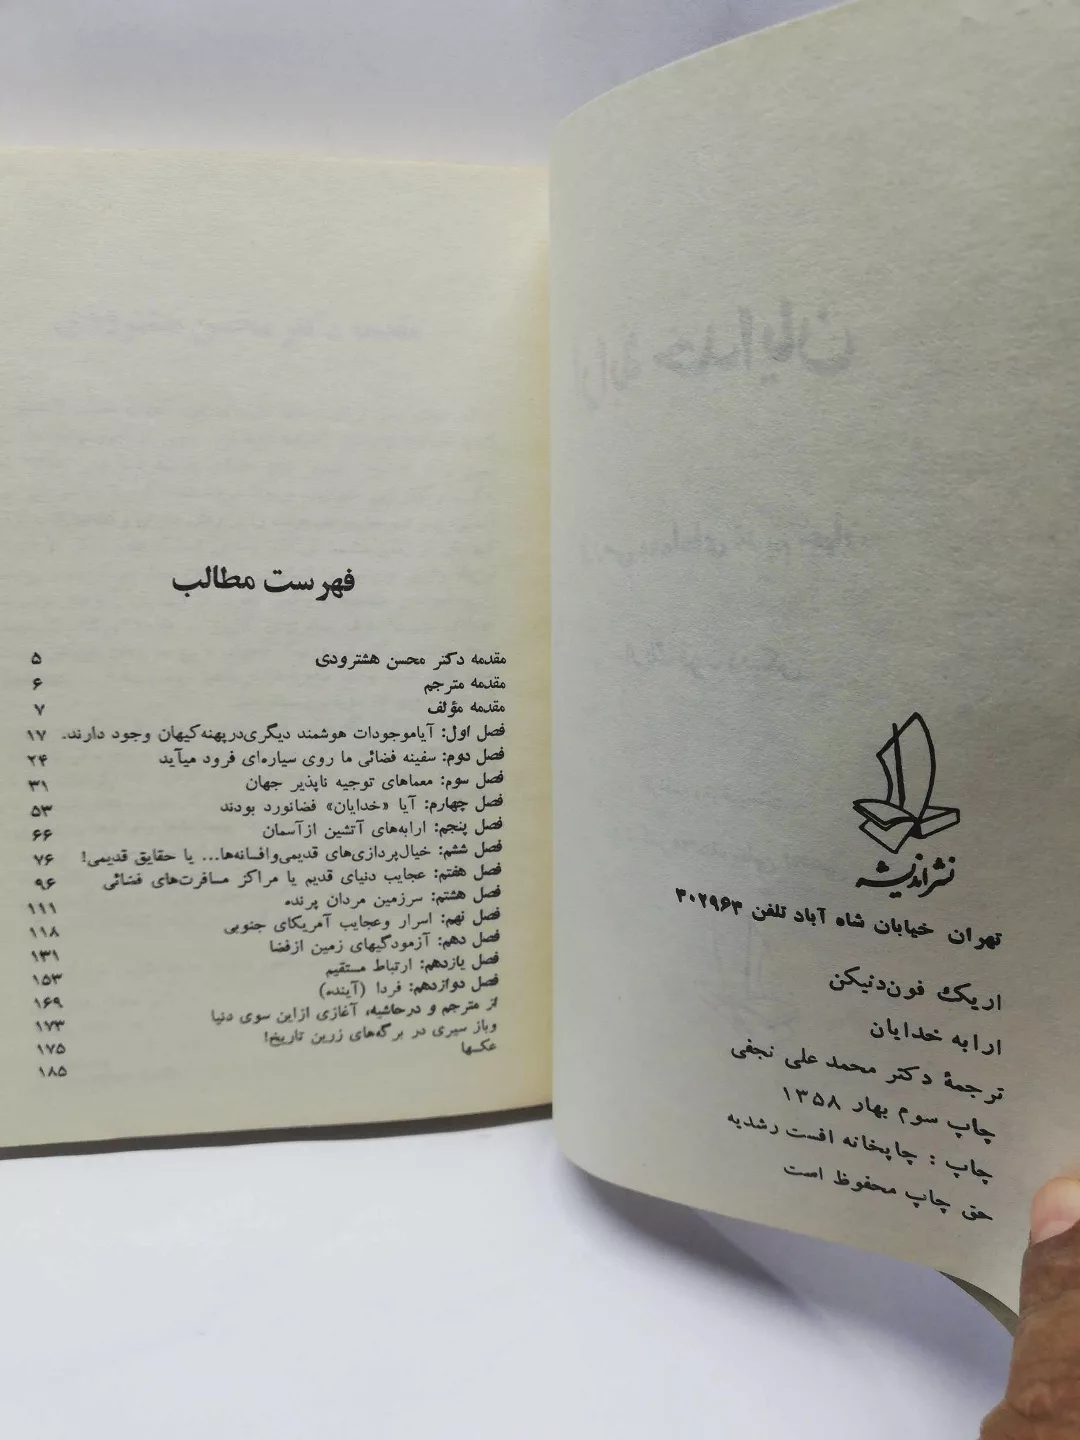 نشر اندیشه
تهران خیابان شاه آباد تلفن ۳۰۲۹۶۳
اریک فون‌دنیکن
ارابه خدایان
ترجمهٔ دکتر محمد علی نجفی
چاپ سوم بهار ۱۳۵۸
چاپ : چاپخانه افست رشدیه
حق چاپ محفوظ است
فهرست مطالب
مقدمه دکتر محسن هشترودی ۵
مقدمه مترجم ۶
مقدمه مؤلف ۷
فصل اول: آیاموجودات هوشمند دیگری‌درپهنه‌کیهان وجود دارند. ۱۷
فصل دوم: سفینه فضائی ما روی سیاره‌ای فرود میآید ۲۴
فصل سوم: معماهای توجیه ناپذیر جهان ۳۱
فصل چهارم: آیا «خدایان» فضانورد بودند ۵۳
فصل پنجم: ارابه‌های آتشین ازآسمان ۶۶
فصل ششم: خیال‌پردازی‌های قدیمی‌وافسانه‌ها... یا حقایق قدیمی! ۷۶
فصل هفتم: عجایب دنیای قدیم یا مراکز مسافرت‌های فضائی ۹۶
فصل هشتم: سرزمین مردان پرنده ۱۱۱
فصل نهم: اسرار وعجایب آمریکای جنوبی ۱۱۸
فصل دهم: آزمودگیهای زمین ازفضا ۱۳۱
فصل یازدهم: ارتباط مستقیم ۱۵۳
فصل دوازدهم: فردا (آینده) ۱۶۹
از مترجم و درحاشیه، آغازی ازاین سوی دنیا ۱۷۳
وباز سیری در برگه‌های زرین تاریخ! ۱۷۵
عکسها ۱۸۵